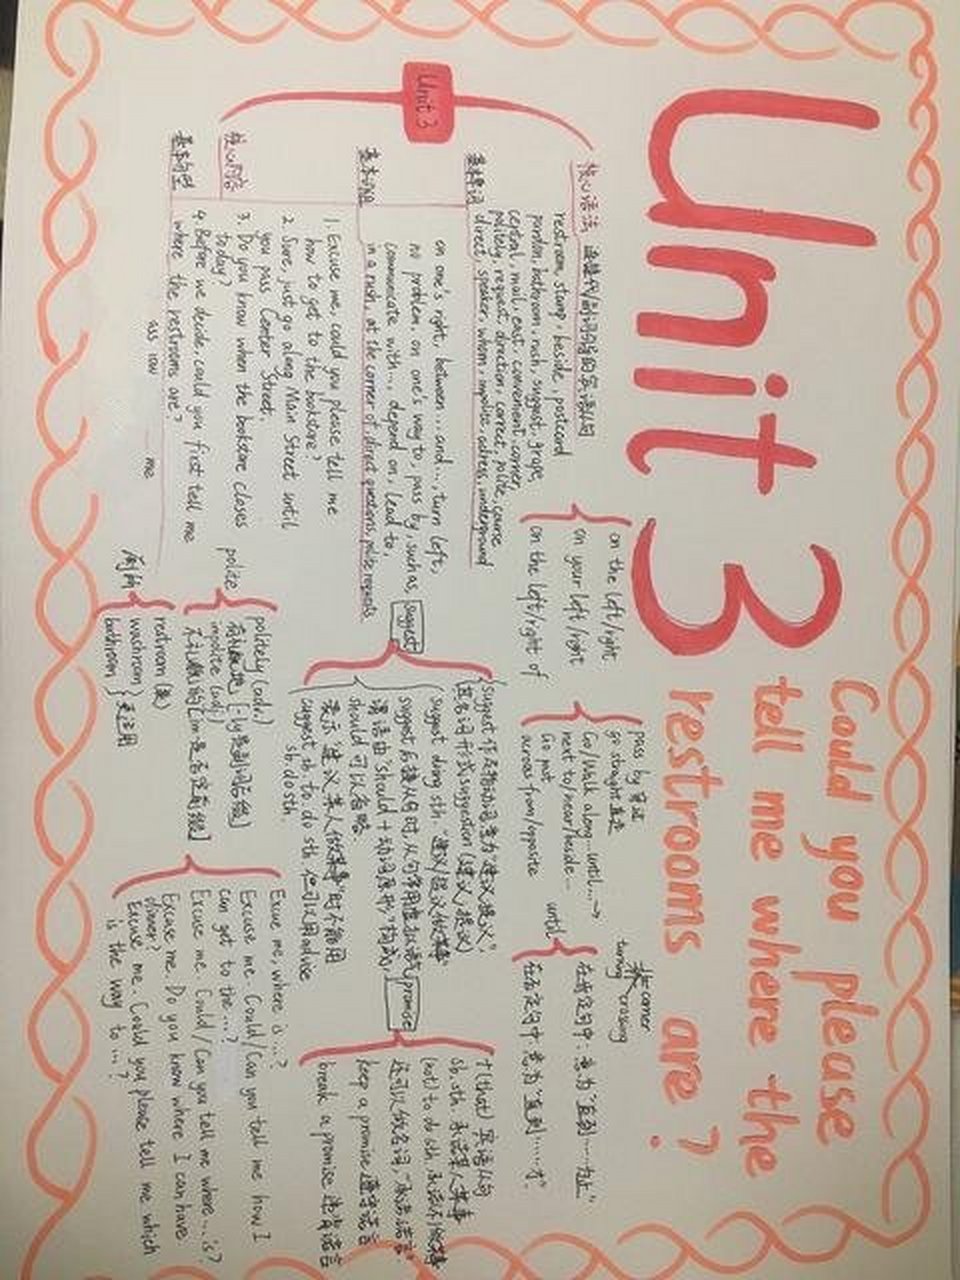 Unit 3
Could you please
tell me where the
restrooms are?
Unit 3
核心语法
restroom, stamp, beside, postcard
pardon, bathroom, rush, suggest, grape,
central, mail, east, convenient, corner,
politely, request, direction, correct, polite, course
direct, speaker, whom, impolite, adress, underground
on one's right, between...and..., turn left,
no problem, on one's way to, pass by, such as,
communicate with..., depend on, lead to,
in a rush, at the corner of, direct questions, polite requests
核心内容
1. Excuse me, could you please tell me
how to get to the bookstore?
2. Sure, just go along Main Street until
you pass Center Street.
3. Do you know when the bookstore closes
today?
基本句型
4. Before we decide, could you first tell me
where the restrooms are?
me
on the left/right
on your left/right
on the left/right of
pass by 穿过
go straight 直走
Go/Walk along...until...→
next to/near/beside...
Go past
across from/opposite
corner
turning crossing
until
在肯定句中:意为"直到……为止"
在否定句中 意为"直到……才"
suggest
suggest 作及物动词意为"建议,提议",
其名词形式suggestion (建议,提议)
suggest doing sth "建议/提议做某事"
suggest 后接从句时,从句常用虚拟语气,
谓语由"should+动词原形"构成,
should 可以省略.
表示"建议某人做某事"时不能用
suggest sb. to do sth 但可以用advise
sb. do sth.
promise
+(that) 宾语从句
sb. sth. 承诺某人某事
(not) to do sth. 承诺(不)做某事
还可以做名词,"承诺 诺言".
keep a promise 遵守诺言
break a promise 违背诺言
polite
politely (adv.)
有礼貌地 [-ly是副词后缀]
impolite (adj.)
不礼貌的 [im是否定前缀]
厕所
restroom (美)
washroom
bathroom
Excuse me, where is...?
Excuse me. Could/Can you tell me how I
can get to the...?
Excuse me. Could/Can you tell me where...is?
Excuse me. Do you know where I can have
dinner?
Excuse me. Could you please tell me which
is the way to...?